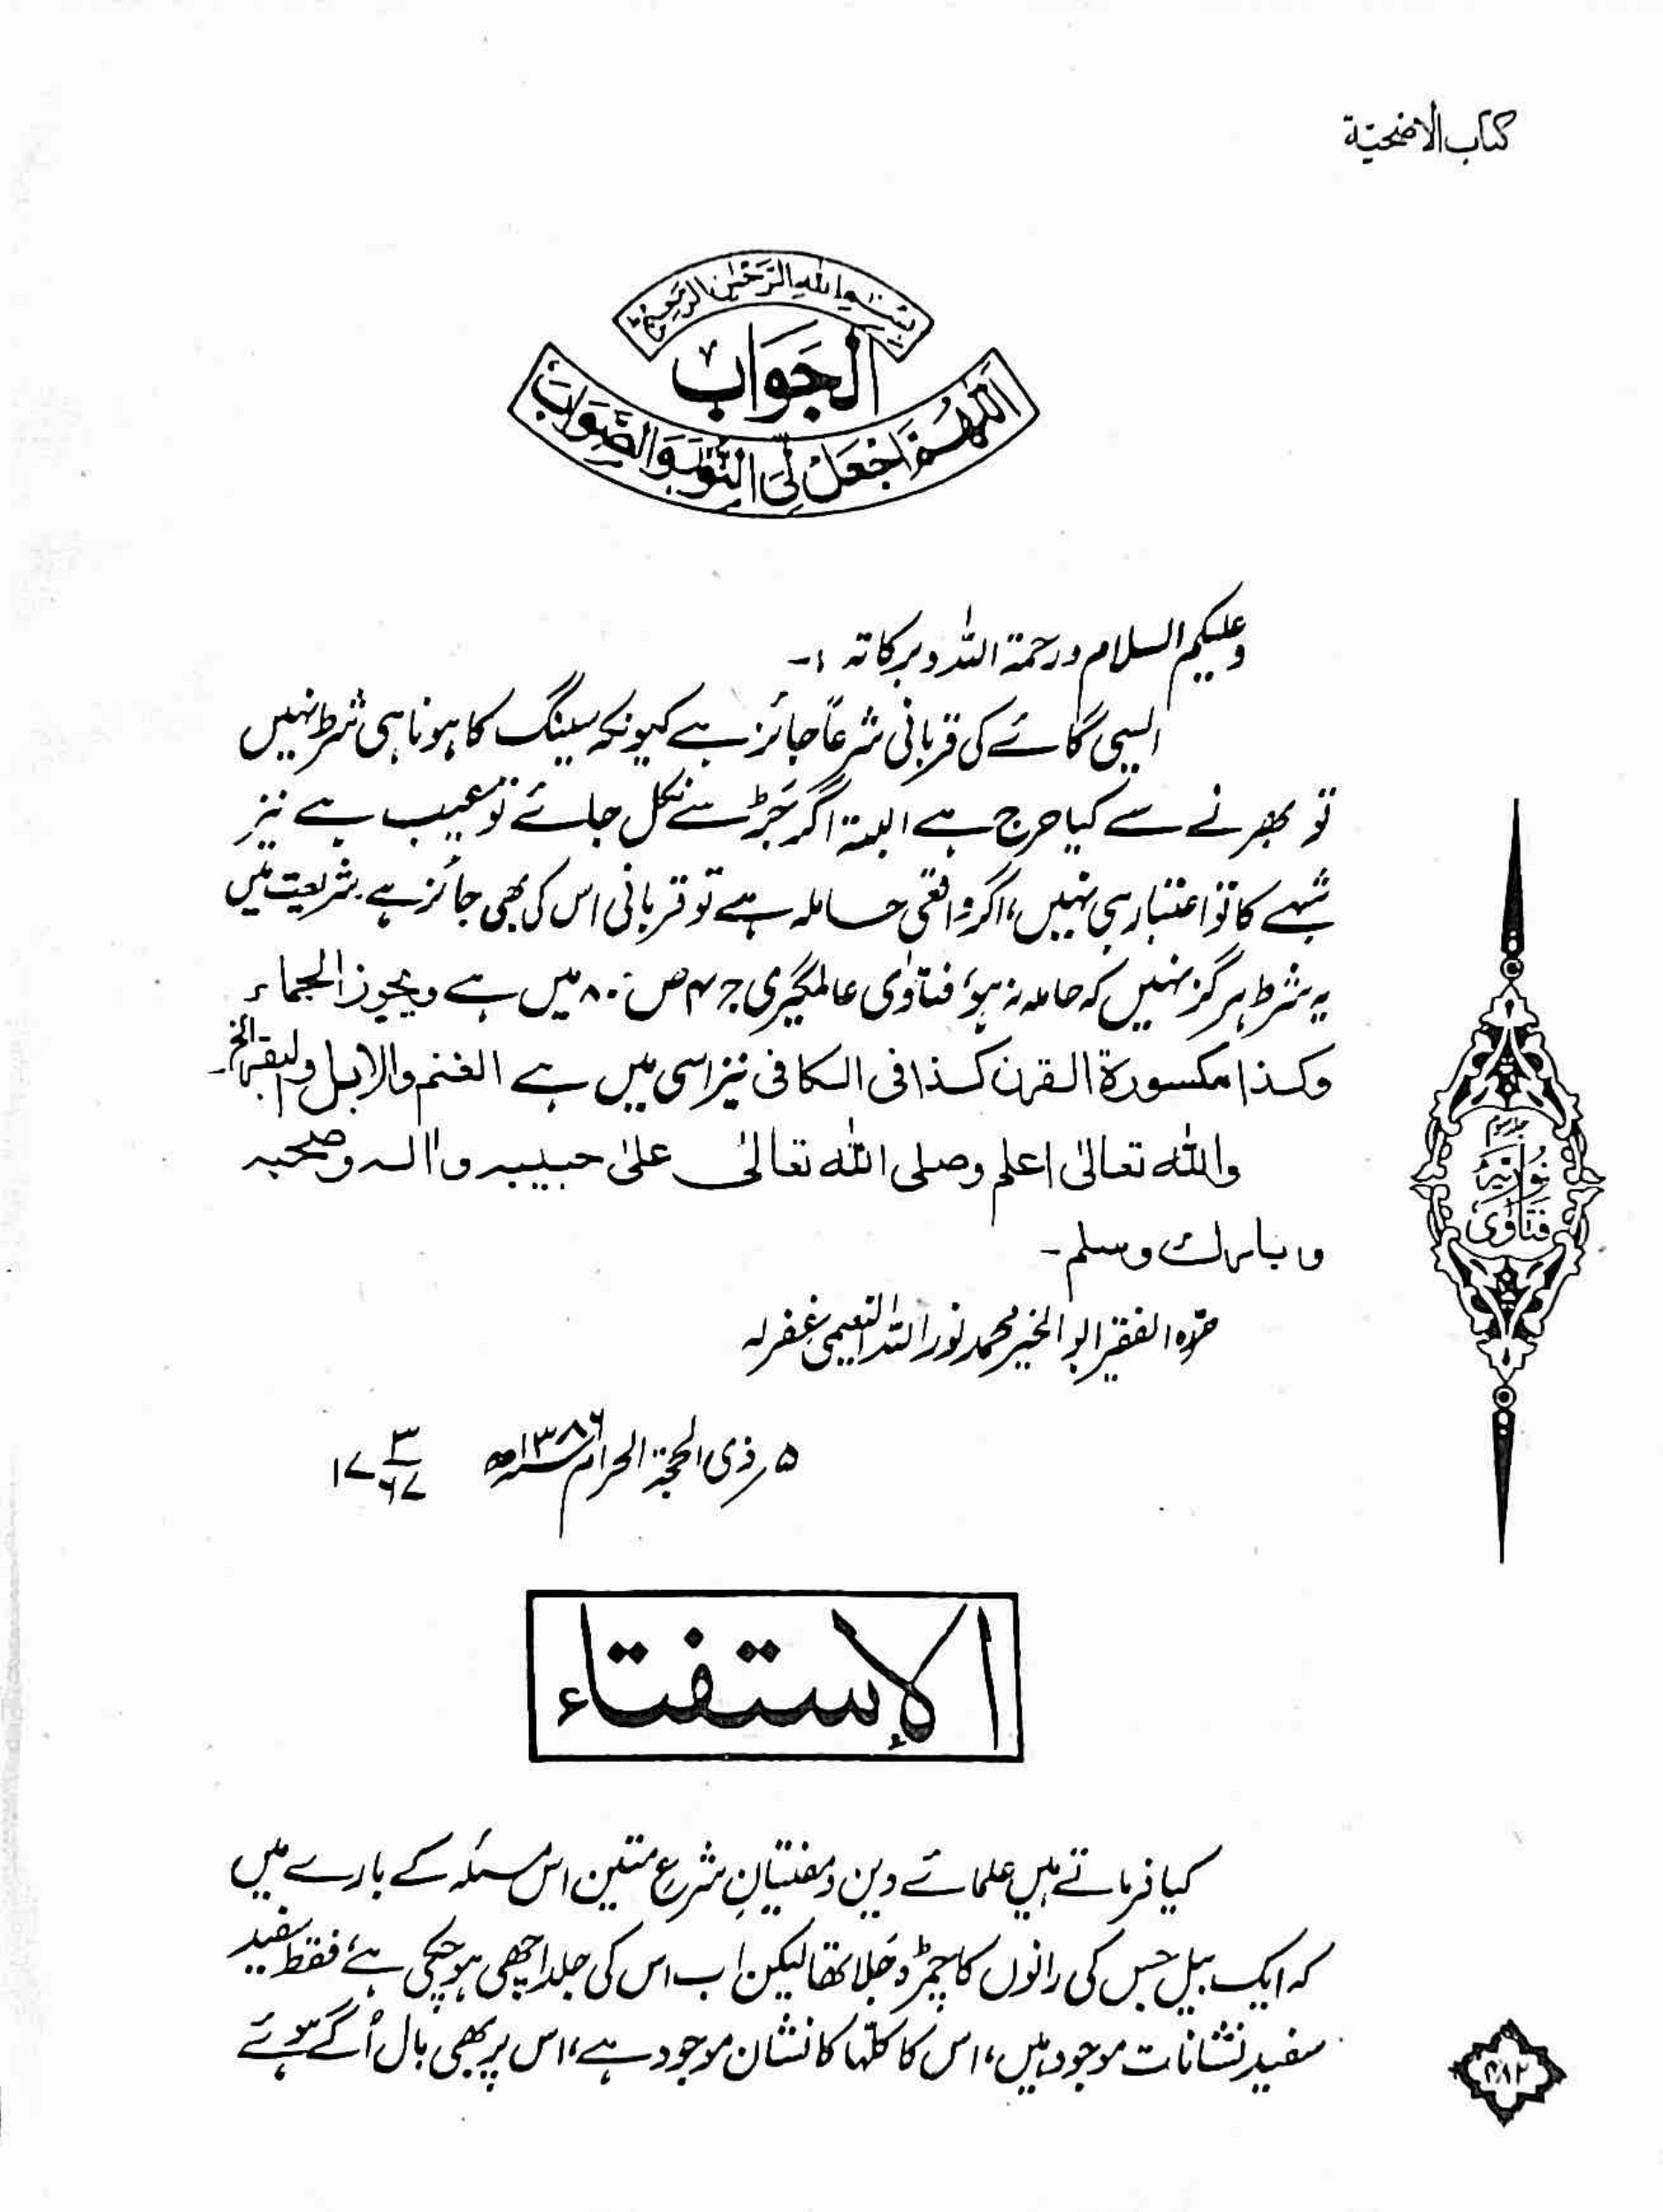 کتاب الاضحیّۃ
بِسْمِ اللهِ الرَّحْمٰنِ الرَّحِيْمِ
الجَوَابُ
اَللّٰهُمَّ اجْعَلْ لِيَ النُّوْرَ وَالصَّوَابَ
وعلیکم السلام ورحمۃ اللہ وبرکاتہ :۔
ایسی گائے کی قربانی شرعاً جائز ہے کیونکہ سینگ کا ہونا ہی شرط نہیں
تو بھرنے سے کیا حرج ہے البتہ اگر جَڑ سے نکل جائے تو عیب ہے نیز
شبہے کا تو اعتبار ہی نہیں، اگر واقعی حاملہ ہے تو قربانی اس کی بھی جائز ہے، شریعت میں
یہ شرط ہرگز نہیں کہ حاملہ نہ ہو، فتاوٰی عالمگیری ج ۴ ص ۸۰ میں ہے ویجوز الجماء
وکذا مکسورۃ القرن کذا فی الکافی نیز اسی میں ہے الغنم والابل والبقر الخ۔
واللہ تعالیٰ اعلم وصلی اللہ تعالیٰ علیٰ حبیبہ واٰلہ وصحبہ
وبارک وسلم۔
حرّرہ الفقیر ابوالخیر محمد نور اللہ النعیمی غفرلہ
۵ ذی الحجۃ الحرام ۱۳۸۶ھ ۱۷/۳/۶۷
الإستفتاء
کیا فرماتے ہیں علمائے دین و مفتیانِ شرع متین اس مسئلہ کے بارے میں
کہ ایک بیل جس کی رانوں کا چمڑہ جَلا تھا لیکن اب اس کی جلد اچھی ہو چکی ہے، فقط سفید
سفید نشانات موجود ہیں، اس کا کلّہا کا نشان موجود ہے، اس پر بھی بال اُگے ہوئے
نُوریَہ
فتَاوٰی